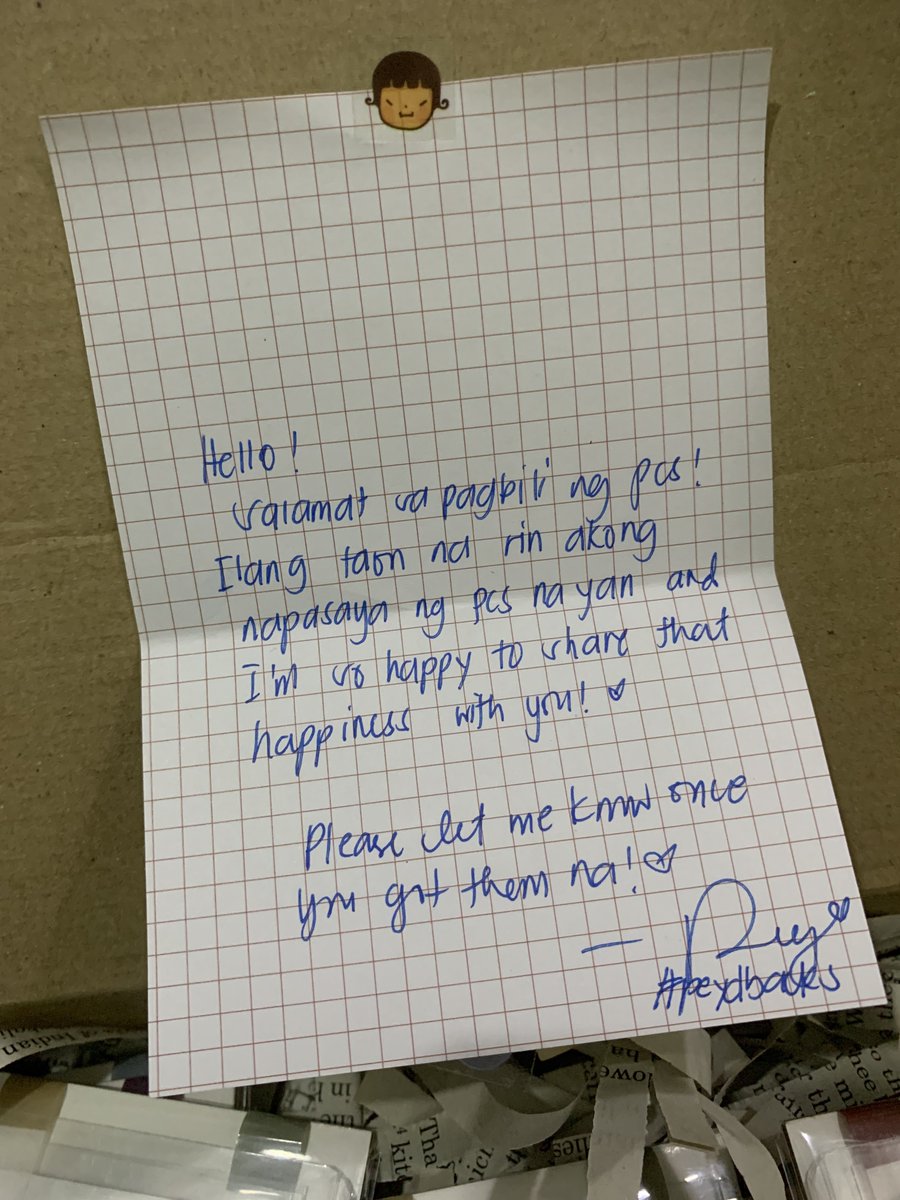 Hello!
Salamat sa pagbili ng pcs!
Ilang taon na rin akong
napasaya ng pcs na yan and
I'm so happy to share that
happiness with you!
Please let me know once
you got them na!
#peydbacks
of Indian
in
the
Tha
kit